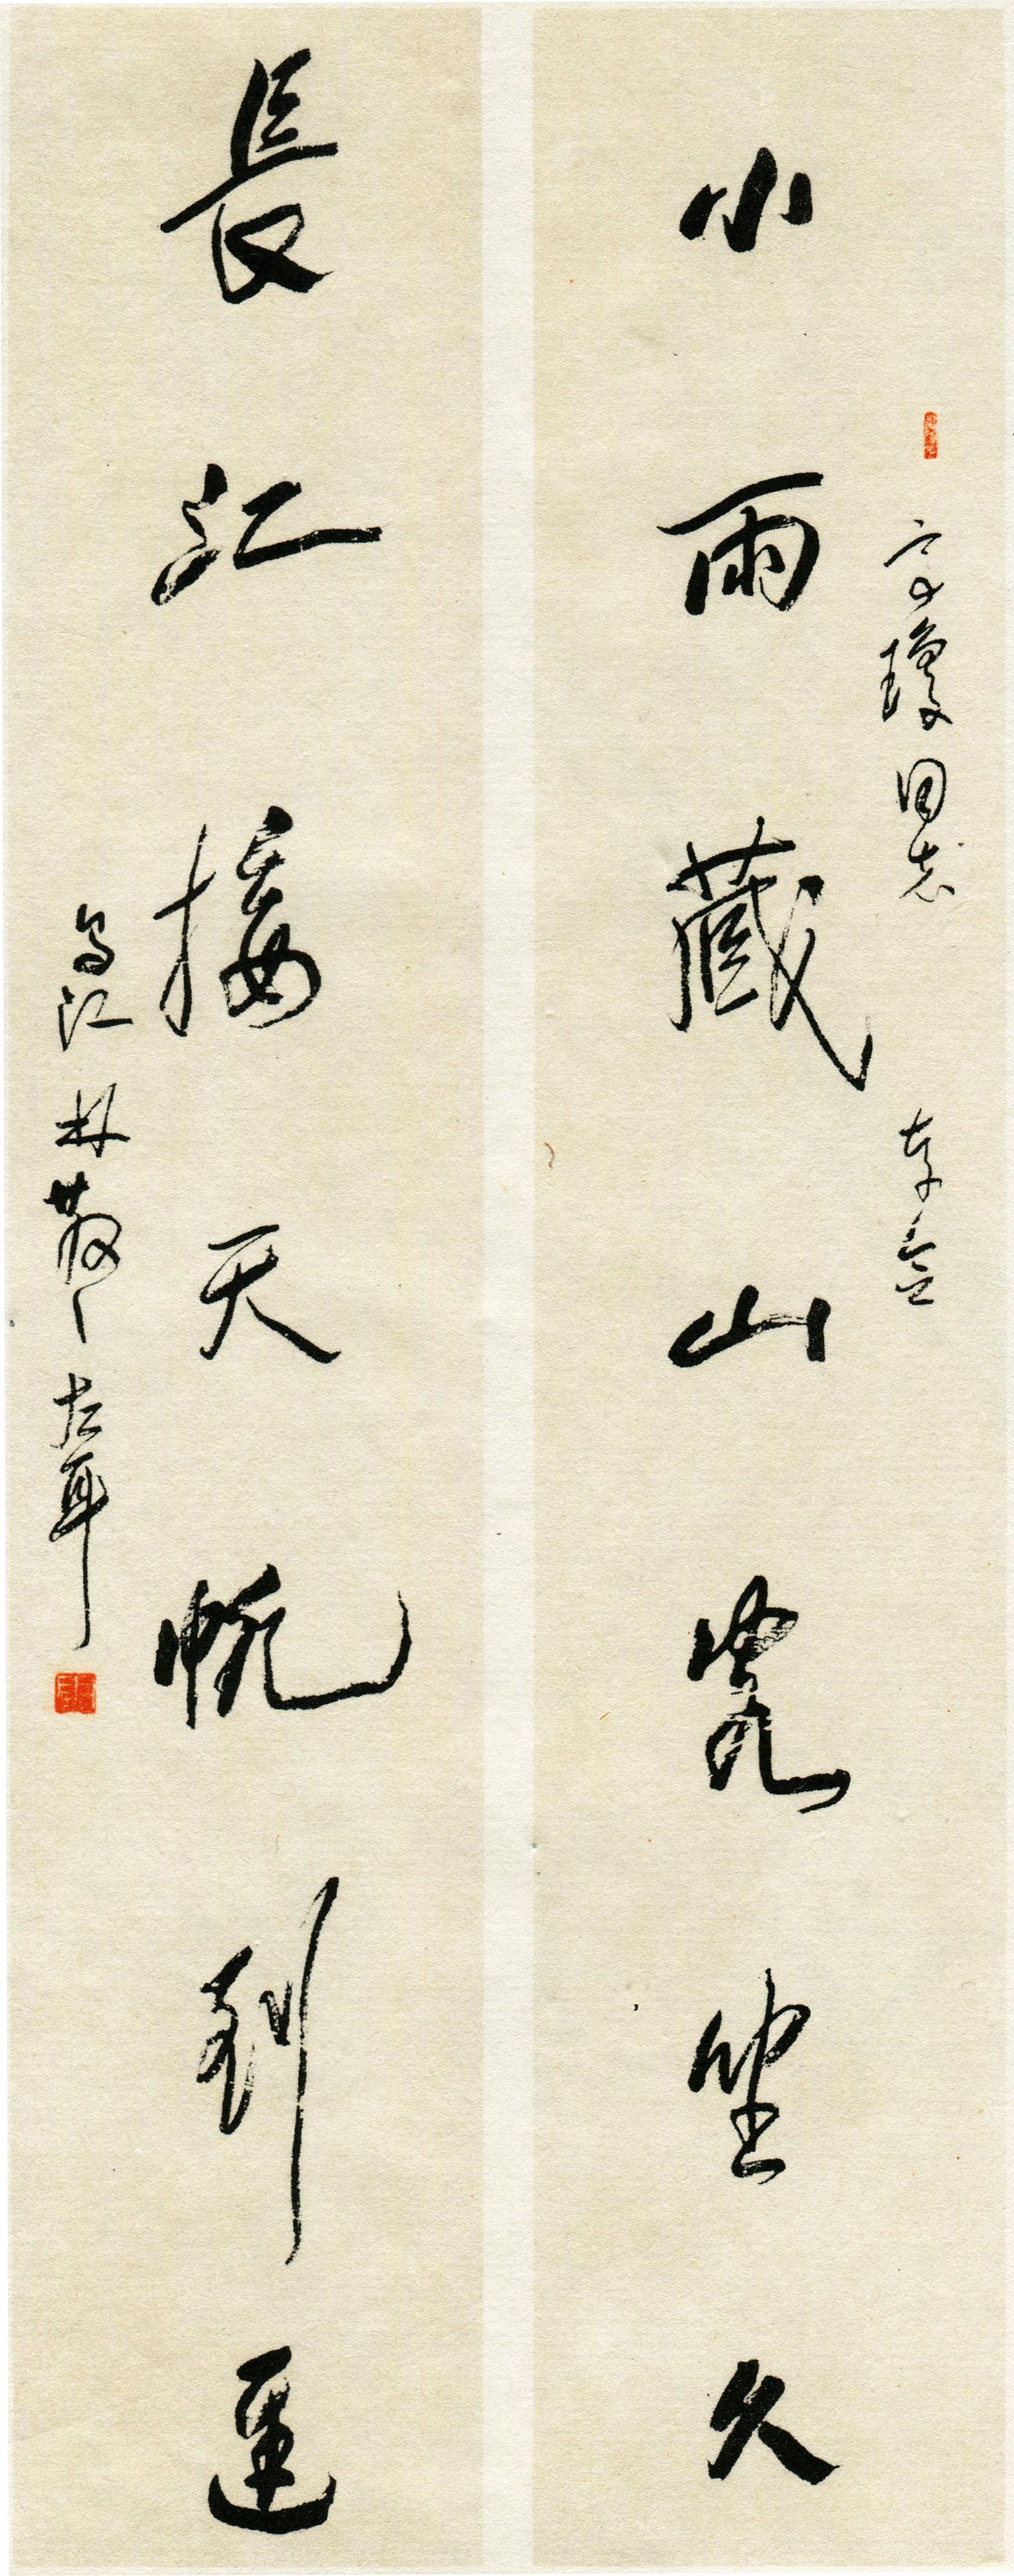 小雨藏山客坐久
長江接天帆到遲
瓊同志
存念
烏江林散之左耳